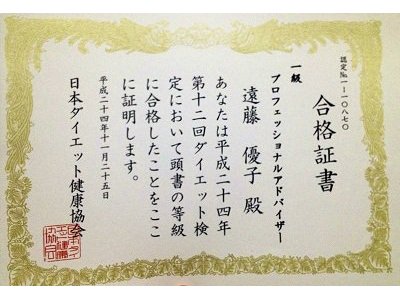 認定No.1-10870
合格証書
一級
プロフェッショナルアドバイザー
遠藤 優子 殿
あなたは平成二十四年
第十二回ダイエット検
定において頭書の等級
に合格したことをここ
に証明します。
平成二十四年十一月二十五日
日本ダイエット健康協会